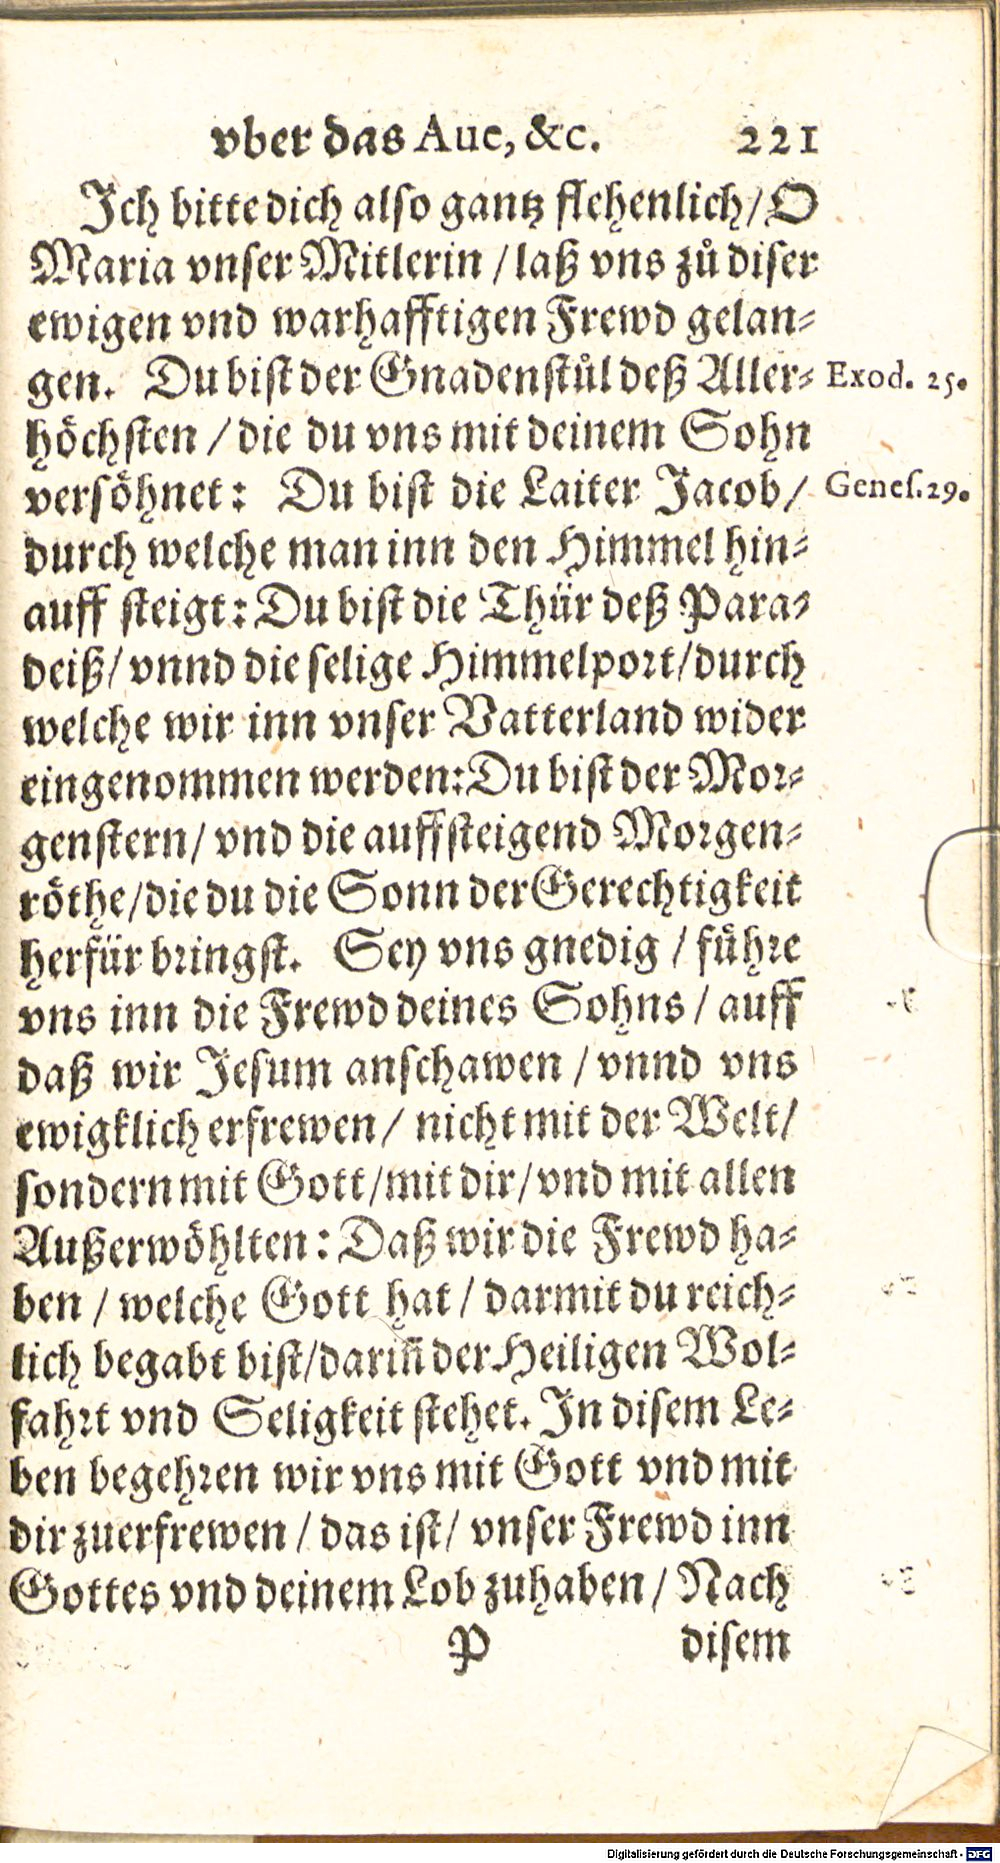 vber das Aue, &c. 221
Ich bitte dich also gantz flehenlich/ O
Maria vnser Mitlerin / laß vns zů diser
ewigen vnd warhafftigen Frewd gelan-
gen. Du bist der Gnadenstůl deß Aller-
Exod. 25.
höchsten / die du vns mit deinem Sohn
versöhnet: Du bist die Laiter Jacob/
Genes. 29.
durch welche man inn den Himmel hin-
auff steigt: Du bist die Thür deß Para-
deiß/ vnnd die selige Himmelport/ durch
welche wir inn vnser Vatterland wider
eingenommen werden: Du bist der Mor-
genstern/ vnd die auffsteigend Morgen-
röthe/ die du die Sonn der Gerechtigkeit
herfür bringst. Sey vns gnedig / führe
vns inn die Frewd deines Sohns / auff
daß wir Jesum anschawen / vnnd vns
ewigklich erfrewen/ nicht mit der Welt/
sondern mit Gott/ mit dir/ vnd mit allen
Außerwöhlten: Daß wir die Frewd ha-
ben / welche Gott hat / darmit du reich-
lich begabt bist/ dariñ der Heiligen Wol-
fahrt vnd Seligkeit stehet. In disem Le-
ben begehren wir vns mit Gott vnd mit
dir zuerfrewen / das ist/ vnser Frewd inn
Gottes vnd deinem Lob zuhaben / Nach
P disem
Digitalisierung gefördert durch die Deutsche Forschungsgemeinschaft - DFG